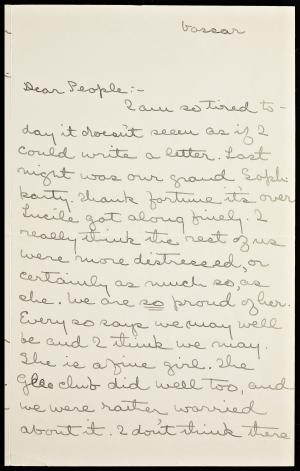 Vassar
Dear People:-
I am so tired to-
day it doesn't seem as if I
could write a letter. Last
night was our grand Soph.
party. Thank fortune it's over
Lucile got along finely. I
really think the rest of us
were more distressed, or
certainly as much so, as
she. We are so proud of her.
Every so says we may well
be and I think we may.
She is a fine girl. The
Glee club did well too, and
we were rather worried
about it. I don't think there